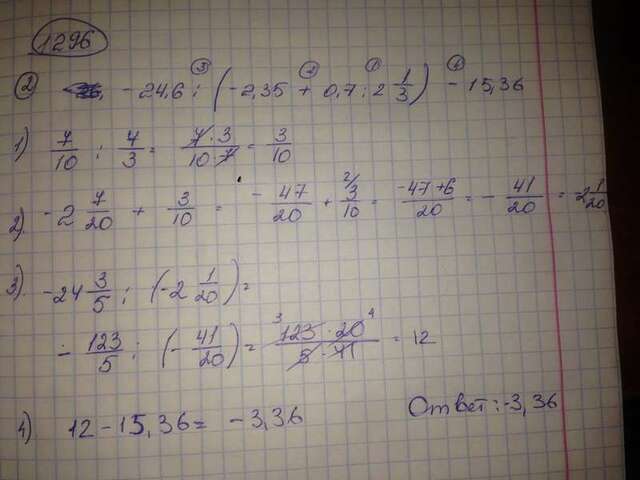 1296
② -24,6 : (-2,35 + 0,7 : 2 1/3) - 15,36
1) 7/10 : 7/3 = 7·3/10·7 = 3/10
2) -2 7/20 + 3/10 = -47/20 + 3/10 = -47+6/20 = -41/20 = -2 1/20
3) -24 3/5 : (-2 1/20) =
- 123/5 : (-41/20) = 123·20/5·41 = 12
4) 12 - 15,36 = -3,36
Ответ: -3,36